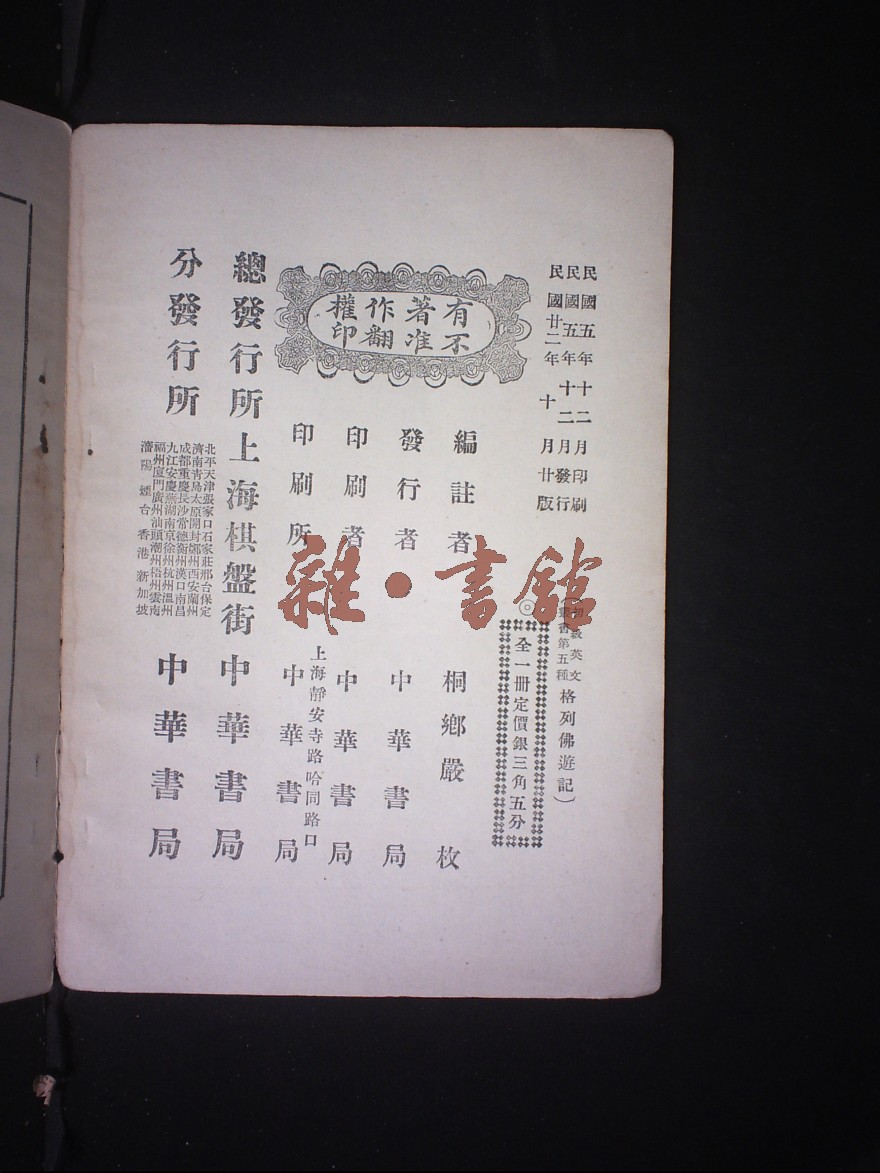 民國五年十二月印刷
民國五年十二月發行
民國廿二年十月廿版
初級英文
叢書第五種
格列佛遊記)
◎全一冊定價銀三角五分
有著作權
不准翻印
編註者 桐鄉嚴枚
發行者 中華書局
印刷者 中華書局
上海靜安寺路哈同路口
印刷所 中華書局
總發行所 上海棋盤街 中華書局
分發行所 中華書局
北平天津張家口石家莊邢台保定
濟南青島太原開封鄭州西安蘭州
成都重慶長沙常德衡州漢口南昌
九江安慶蕪湖南京徐州杭州溫州
福州廈門廣州汕頭潮州梧州雲南
瀋陽煙台香港新加坡
雜·書館